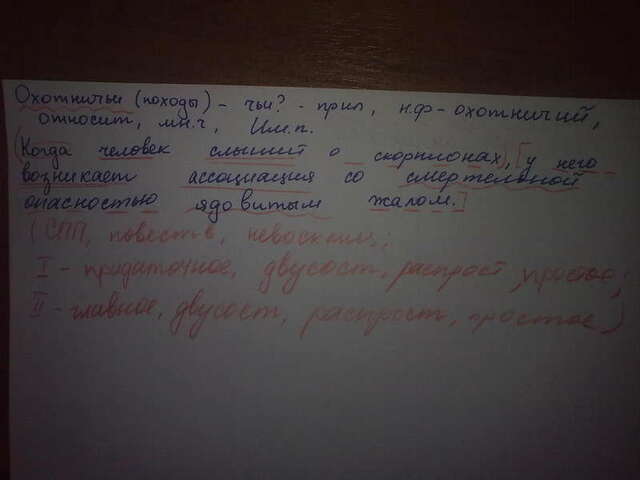 Охотничьи (походы) - чьи? - прил, н.ф - охотничий,
относит, мн.ч, Им.п.
(Когда человек слышит о скорпионах), [у него
возникает ассоциация со смертельной
опасностью ядовитым жалом.]
(СПП, повеств, невосклиц,;
I - придаточное, двусост, распрост, простое;
II - главное, двусост, распрост, простое)